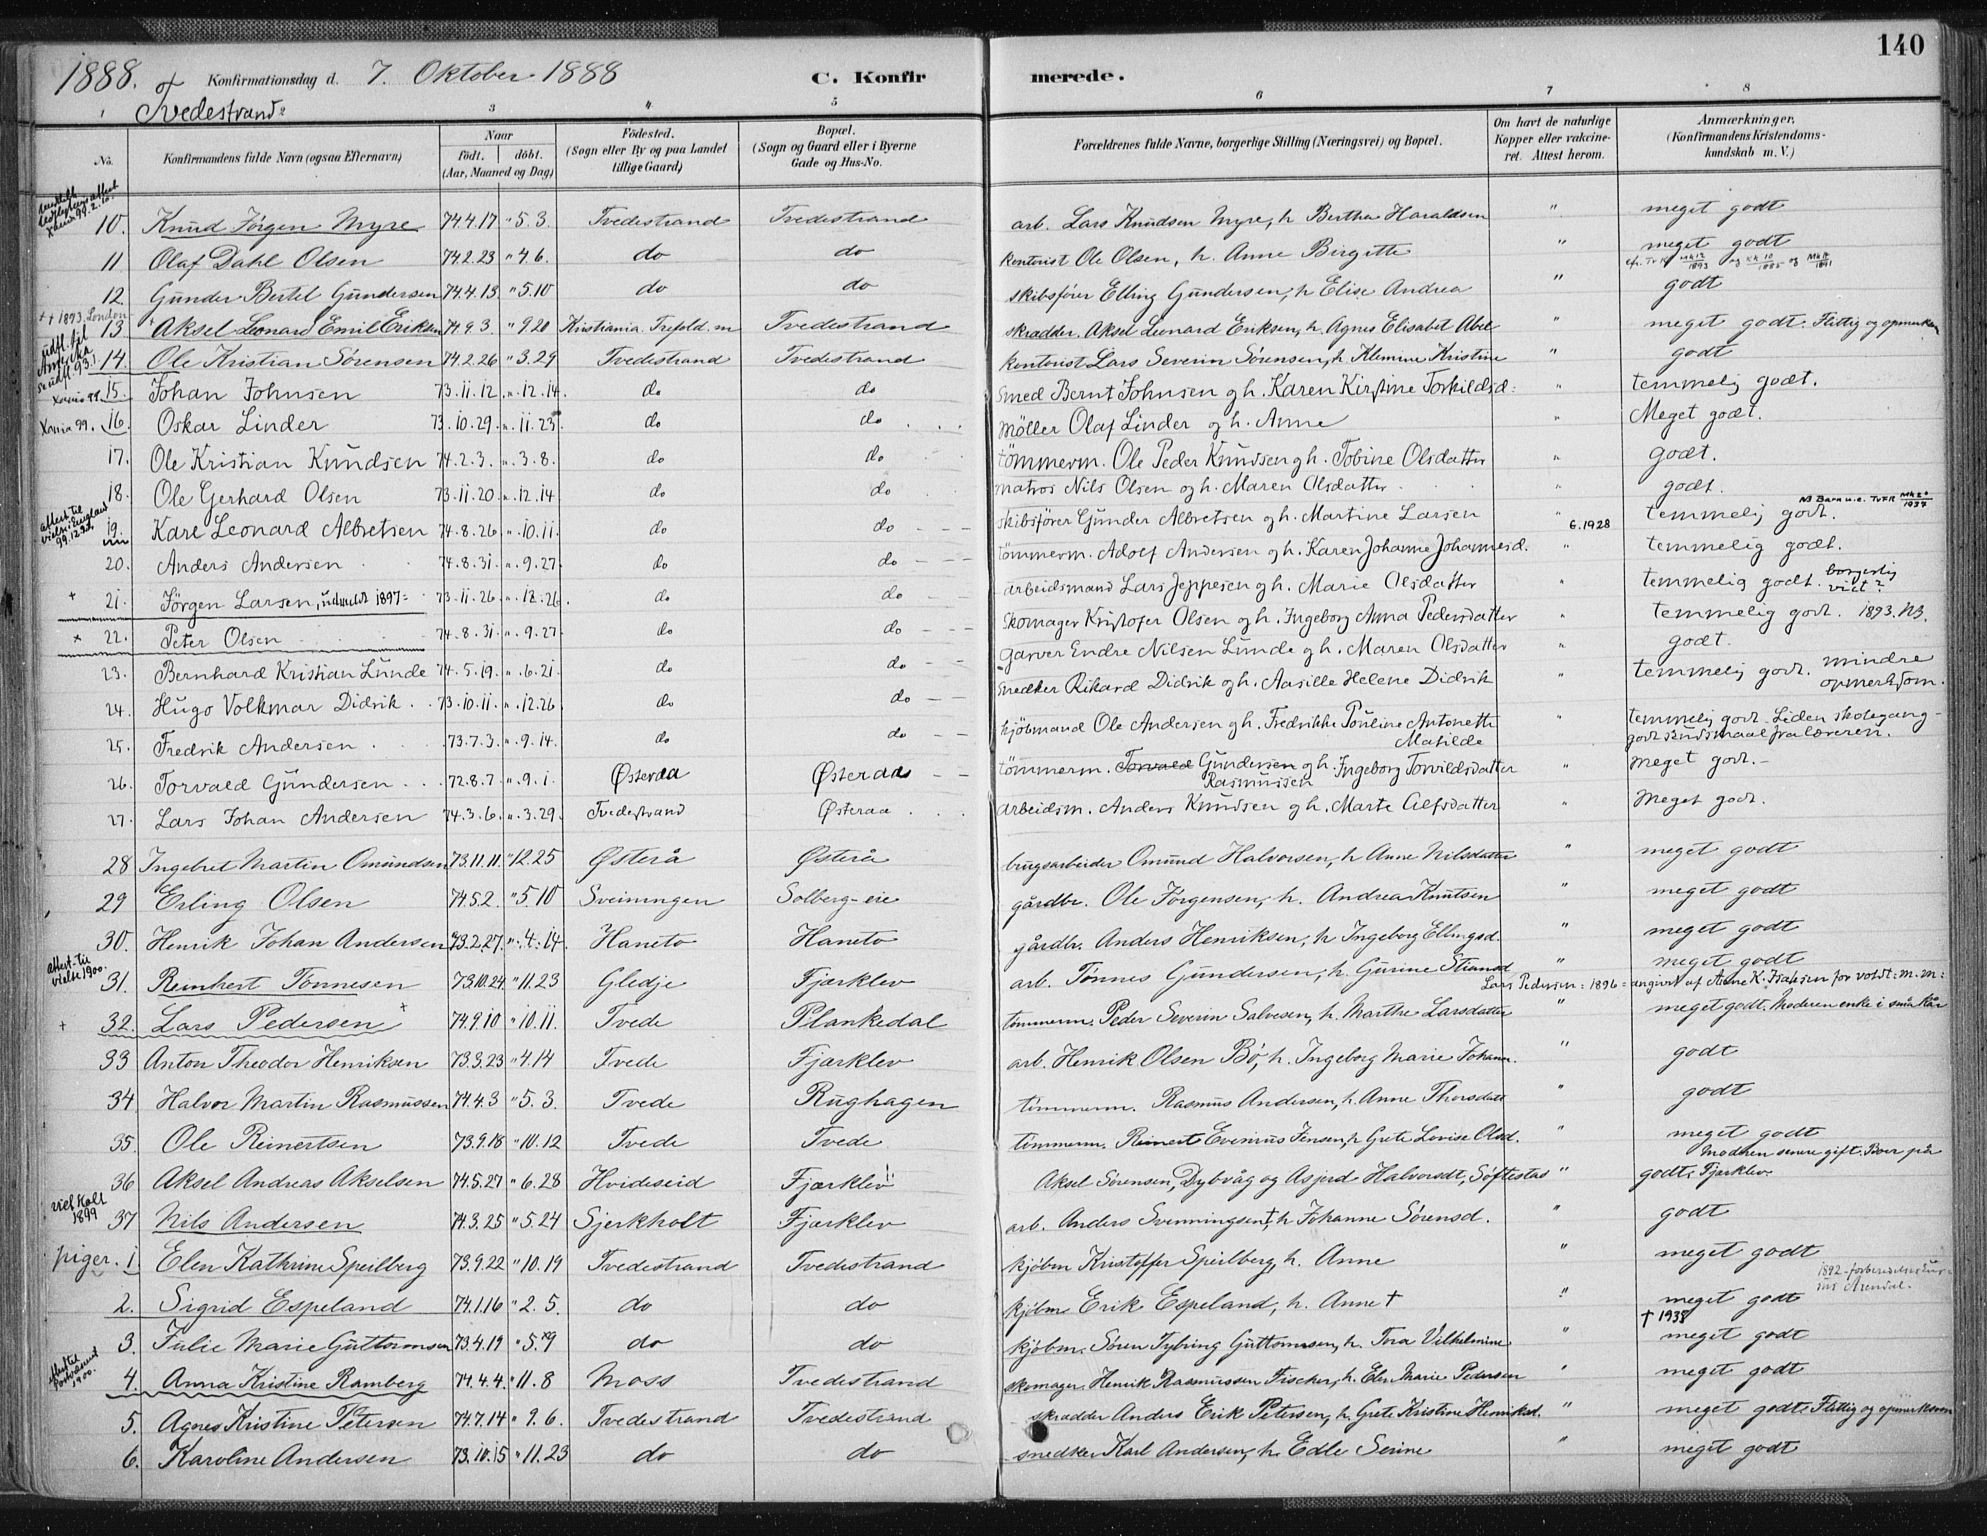 140
1888. Konfirmationsdag d. 7. Oktober 1888 C. Konfirmerede.
Tvedestrand
1 3 " 5 6 7 8
No. Konfirmandens fulde Navn (ogsaa Efternavn) Naar födt. döbt. (Aar, Maaned og Dag) Födested. (Sogn eller By og paa Landet tillige Gaard) Bopæl. (Sogn og Gaard eller i Byerne Gade og Hus-No. Forældrenes fulde Navne, borgerlige Stilling (Næringsvei) og Bopæl. Om havt de naturlige Kopper eller vakcineret. Attest herom. Anmærkninger. (Konfirmandens Kristendomskundskab m. V.)
10. Knud Jörgen Myre 74.4.17 " 5.3. Tvedestrand Tvedestrand arb. Lars Knudsen Myre, h. Bertha Haraldsen " meget godt
11 Olaf Dahl Olsen 74.2.23 " 4.6. do do kontorist Ole Olsen, h. Anne Birgitte " meget godt
12. Gunder Bertel Gundersen 74.4.13 " 5.10 do do skibsfører Elling Gundersen, h Elise Andrea " godt
†† 1893. London
13 Aksel Leonard Emil Eriksen 74.9.3 " 9.20 Kristiania. Trefold. m Tvedestrand skrædder. Aksel Leonard Eriksen, h. Agnes Elisabet Abel " meget godt. Flittig og opmerksom
udfl. til Amerika 93.
14. Ole Kristian Sörensen 74.2.26 " 3.29 Tvedestrand Tvedestrand kontorist Lars Severin Sörensen, h. Klemine Kristine " godt
Xania 99. 15. Johan Johnsen 73.11.12 ". 12.14. do do Smed Bernt Johnsen og h. Karen Kirstine Torkildsd: " temmelig godt.
Xania 99. 16. Oskar Linder 73.10.29 ". 11.23 do do Möller Olaf Linder og h. Anne " Meget godt.
17. Ole Kristian Knudsen 74.2.3. ". 3.8. do do tömmerm. Ole Peder Knudsen og h. Tobine Olsdatter " godt.
18. Ole Gerhard Olsen 73.11.20 ". 12.14. do do matros Nils Olsen og h. Maren Olsdatter " godt.
19. Karl Leonard Albretsen 74.8.26 ". 10.11. do do skibsförer Gunder Albretsen og h. Martine Larsen " 6.1928 temmelig godt.
20. Anders Andersen 74.8.31 ". 9.27. do do tömmerm. Adolf Andersen og h. Karen Johanne Johannesd. " temmelig godt.
+ 21. Jörgen Larsen, udmeldt 1897 73.11.26 ". 12.26. do do arbeidsmand Lars Jeppesen og h. Marie Olsdatter " temmelig godt. borgerlig viet?
x 22. Peter Olsen 74.8.31 ". 9.27. do do Skomager Kristofer Olsen og h. Ingeborg Anna Pedersdatter " temmelig godt. 1893. NB.
23. Bernhard Kristian Lunde 74.5.19. ". 6.21. do do Garver Endre Nilsen Lunde og h. Maren Olsdatter " godt.
24. Hugo Volkmar Didrik 73.10.11. ". 12.26. do do Snedker Rikard Didrik og h. Aasille Helene Didrik " temmelig godt. mindre opmerksom.
25. Fredrik Andersen 73.7.3. ". 9.14. do do kjöbmand Ole Andersen og h. Fredrikke Pouline Antonette Matilde " temmelig godt. Liden skolegang - godt skudsmaal fra læreren.
26. Torvald Gundersen 72.8.7. ". 9.1. Østeraa Østeraa tömmerm. Torvald Gundersen og h. Ingeborg Torvildsdatter " Meget godt. -
Rasmussen
27. Lars Johan Andersen 74.3.6. ". 3.29. Tvedestrand Østeraa arbeidsm. Anders Knudsen og h. Marte Alfsdatter " Meget godt.
28 Ingebret Martin Omundsen 73.11.11. " 12.25 Østerå Østerå brugsarbeider Omund Halvorsen, h Anne Nilsdatter " meget godt
29 Erling Olsen 74.5.2. " 5.10 Sveinungen Solberg-eie gårdbr. Ole Jörgensen, h. Andrea Knutsen " meget godt
30. Henrik Johan Andersen 73.2.27. " 4.14. Haneto Haneto gårdbr. Anders Henriksen, h Ingeborg Ellingsd. " meget godt
attest til vielse 1900.
31. Reinhert Tönnesen 73.10.24 " 11.23 Gledje Fjærklev arb. Tønnes Gundersen, h. Gurine Strand " meget godt
Lars Pedersen = 1896 = angivet af Anne K. Isaksen for voldt. m.m:
+ 32. Lars Pedersen + 74.9.10 " 10.11. Tvede Plankedal tömmerm. Peder Severin Salvesen, h. Marthe Larsdatter " meget godt. Moderen enke i små kår
33 Anton Theodor Henriksen 73.3.23 " 4.14 Tvede Fjærklev arb. Henrik Olsen Bö, h. Ingeborg Marie Johann. " godt
34 Halvor Martin Rasmussen 74.4.3 " 5.3. Tvede Rughagen tömmerm. Rasmus Andersen, h. Anne Thorsdatt " godt
35. Ole Reinertsen 73.9.18 " 10.12 Tvede Tvede tömmerm. Reinert Evenius Jensen, h Grete Lovise Olsd. " meget godt
36 Aksel Andreas Akselsen 74.5.27 " 6.28 Hvideseid Fjærklev Aksel Sörensen, Dybvåg og Asjerd Halvorsdt, Søftestad " godt. Moderen senere gift. Boer på Fjærklev
1899
37 Nils Andersen 74.3.25 " 5.24 Sjerkholt Fjærklev arb. Anders Svenningsen †, h Johanne Sörensd. " godt
piger. 1. Elen Kathrine Speilberg 73.9.22 " 10.19 Tvedestrand Tvedestrand kjöbm Kristoffer Speilberg, h. Anne " meget godt
2. Sigrid Espeland 74.1.16 " 2.5. do do kjöbm. Erik Espeland, h. Anne † " meget godt
† 1938
3. Julie Marie Guttormsen 73.4.19 " 5.9 do do kjöbm. Sören Tybring Guttormsen, h. Tora Vilhelmine " meget godt
4. Anna Kristine Ramberg 74.4.4. " 11.8 Moss Tvedestrand skomager. Henrik Rasmussen Fischer, h. Elen Marie Pedersen " meget godt
5. Agnes Kristine Petersen 74.7.14 " 9.6. Tvedestrand Tvedestrand skrædder Anders Erik Petersen, h. Grete Kristine Henriksd. " meget godt. Flittig og opmerksom
6. Karoline Andersen 73.10.15 " 11.23 do do snedker Karl Andersen, h. Edle Serine " meget godt